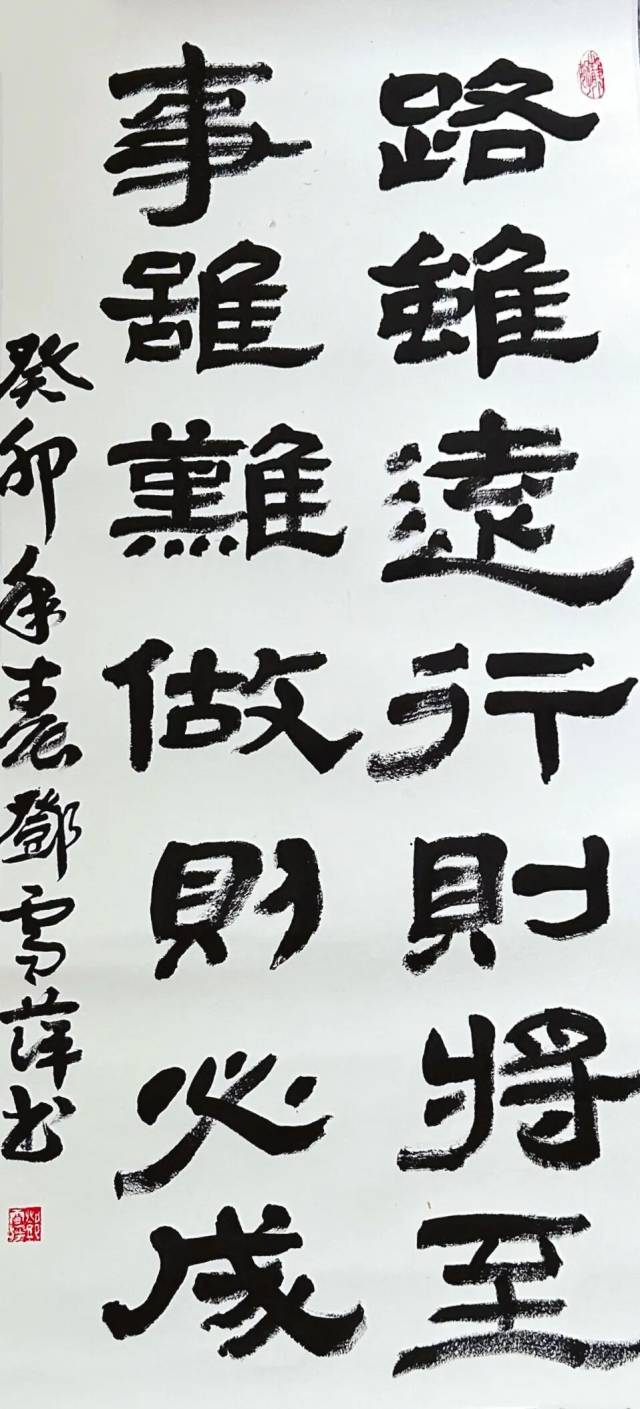 路雖遠行則將至
事雖難做則必成
癸卯年春鄧雪萍書